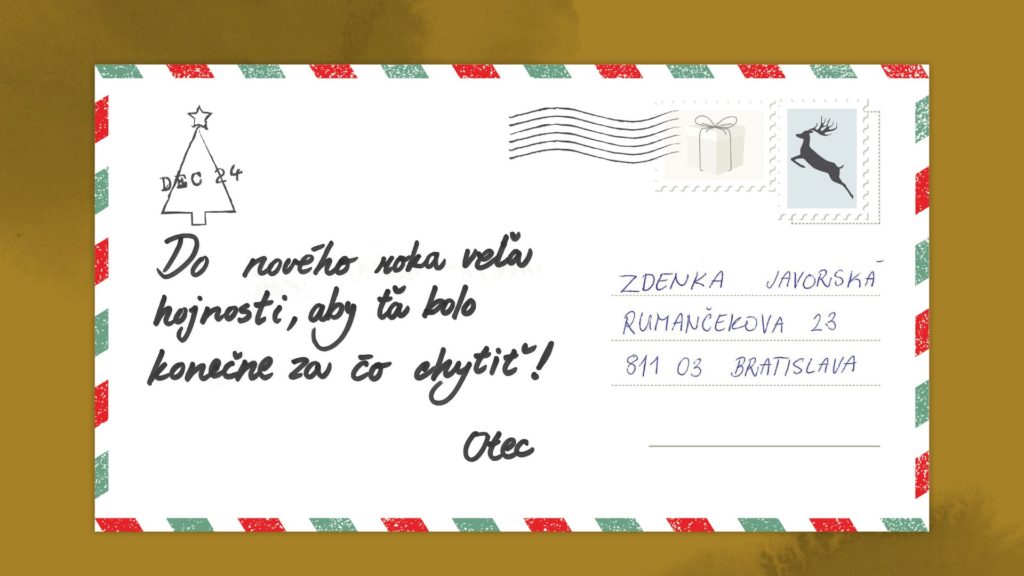 DEC 24
Do nového roka veľa
hojnosti, aby ťa bolo
konečne za čo chytiť!
Otec
ZDENKA JAVORSKÁ
RUMANČEKOVA 23
811 03 BRATISLAVA